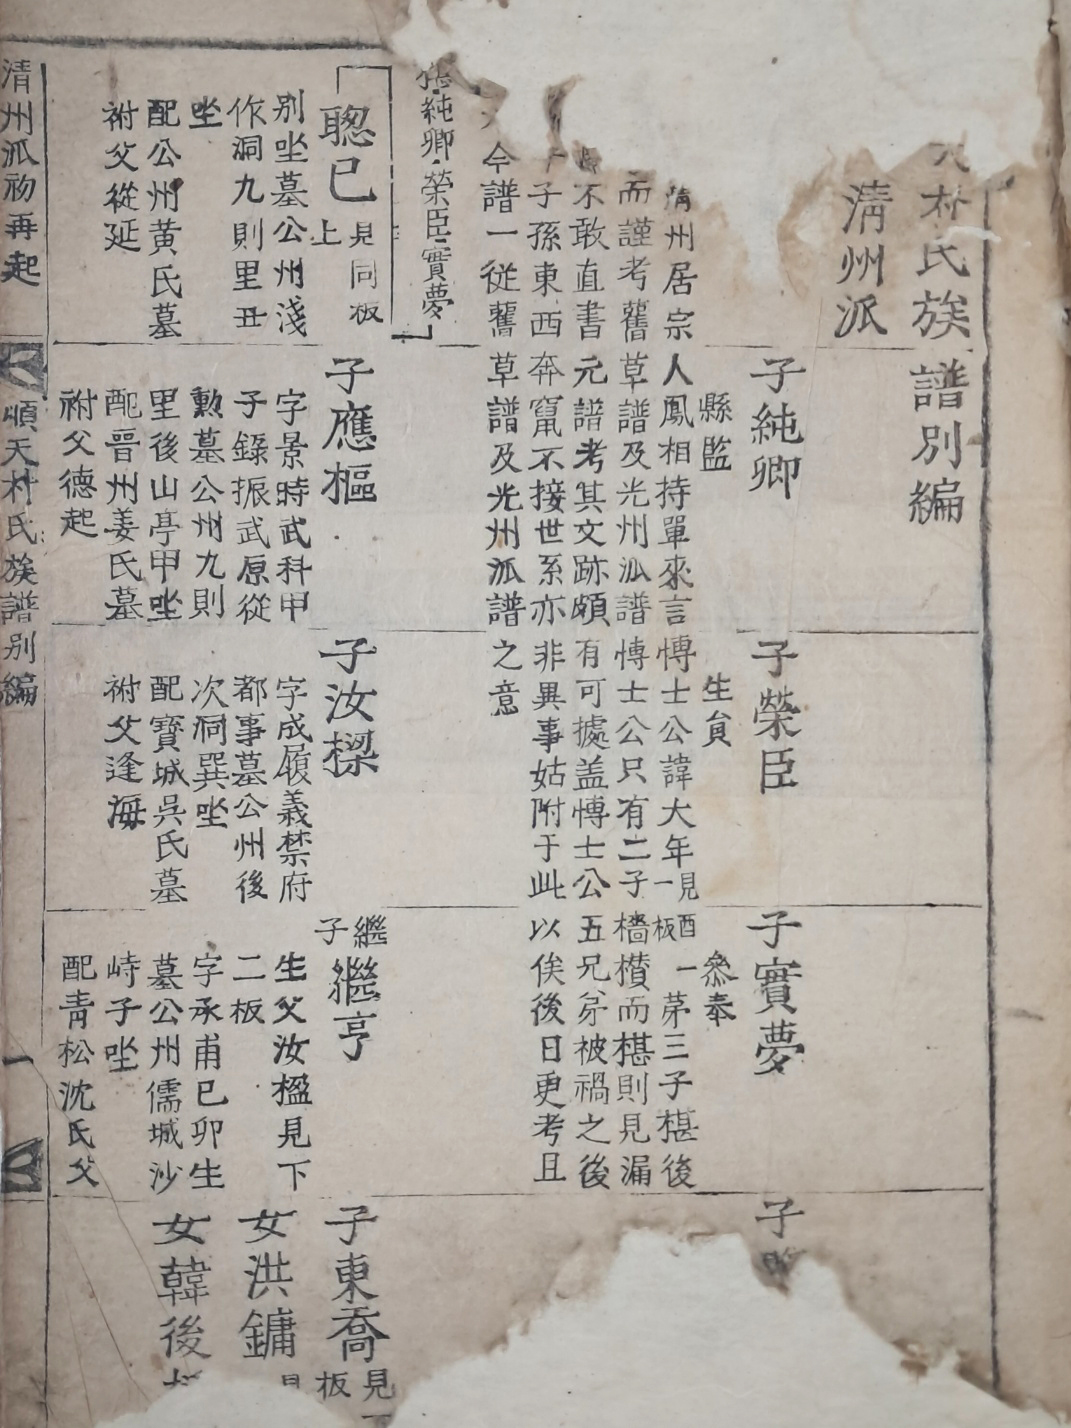 朴氏族譜別編
清州派
子純卿
縣監
子榮臣
生員
子實夢
叅奉
子
清州居宗人鳳相持單來言博士公諱大年見一
酉板
一茅三子椹後
而謹考舊草譜及光州派譜博士公只有二子檣欑而椹則見漏
不敢直書元譜考其文跡頗有可據盖博士公五兄弟被禍之後
子孫東西奔竄不接世系亦非異事姑附于此以俟後日更考且
今譜一從舊草譜及光州派譜之意
純卿 榮臣 實夢
聦已
見同板
上
別坐墓公州淺
作洞九則里丑
坐
配公州黃氏墓
祔父從延
子應樞
字景時武科甲
子錄振武原從
勲墓公州九則
里後山亭甲坐
配晉州姜氏墓
祔父德起
子汝樑
字成履義禁府
都事墓公州後
次洞巽坐
配寶城吳氏墓
祔父逢海
繼
子
繼亨
生父汝楹見下
二板
字承甫己卯生
墓公州儒城沙
峙子坐
配青松沈氏父
子東喬
見
板
女洪鏞
見
女韓後
清州派初再起
順天朴氏族譜別編
一